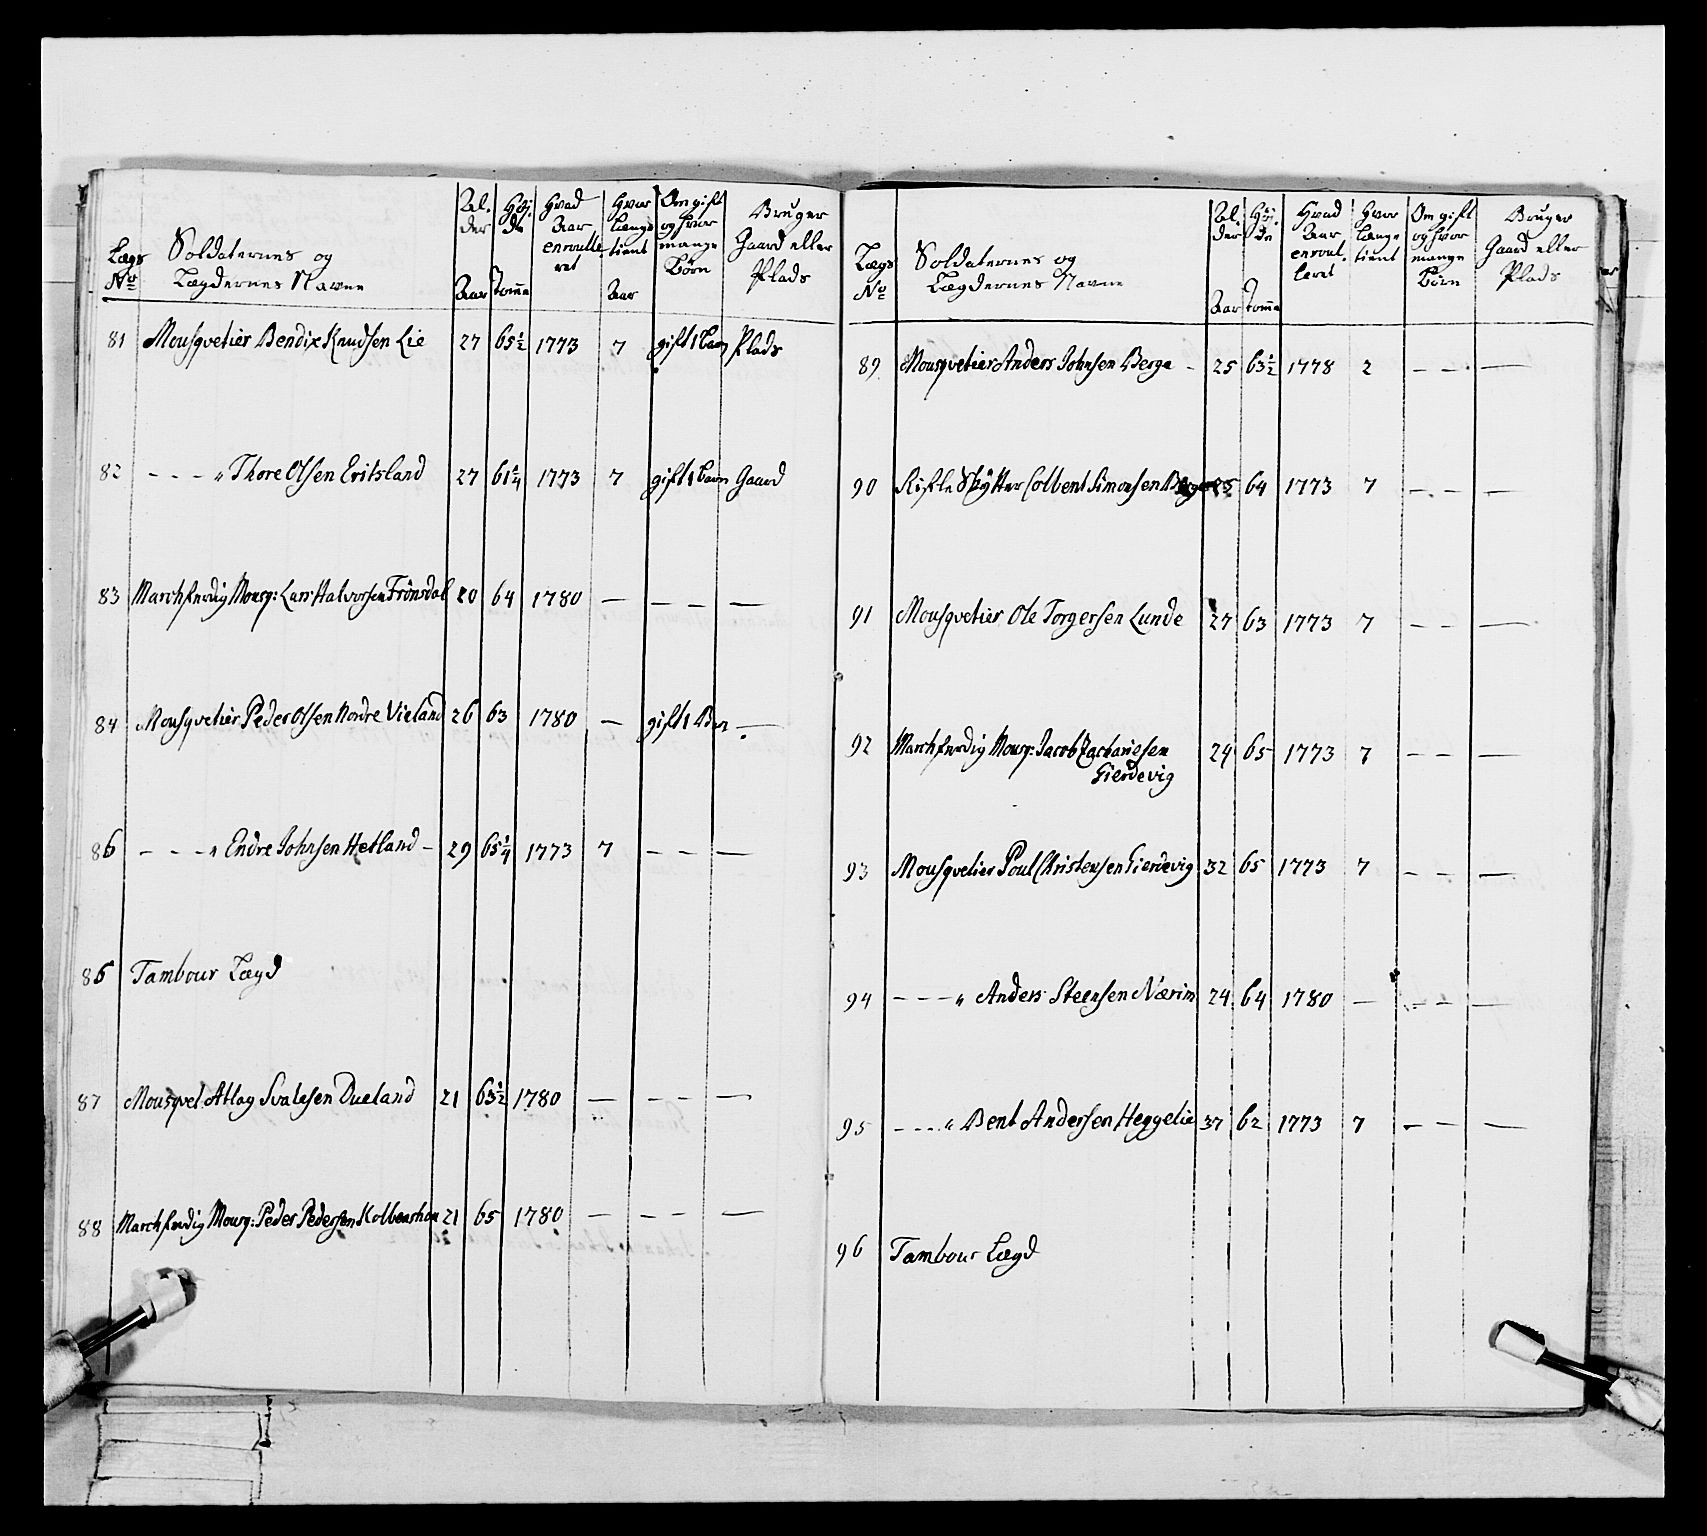 Lægs No
Soldaternes og Lægdernes Navne
Al-der Aar
Høi-de Tomme
Hvad Aar enroulleret
Hvor længe tient Aar
Om gift og hvor mange Børn
Bruger Gaard eller Plads
81 Mousqvetier Bendix Knudsen Lie 27 65½ 1773 7 gift 1 Barn Plads
82 - - - " Thore Olsen Eritsland 27 61¼ 1773 7 gift 1 Barn Gaard
83 Marchferdig Mousq: Lars Halvorsen Frønsdal 20 64 1780 — — — —
84 Mousqvetier Peder Olsen Nordre Vieland 26 63 1780 — gift 1 Bar —
86 - - - " Endre Johnsen Hetland - 29 65¼ 1773 7 — — —
85 Tambour Lægd
87 Mousqvet. Atlag Svalesen Dueland 21 63½ 1780 — — — —
88 Marchferdig Mousq: Peder Pedersen 21 65 1780 — — — —
Lægs No
Soldaternes og Lægdernes Navne
Al-der Aar
Høi-de Tomme
Hvad Aar enroulleret
Hvor længe tient
Om gift og hvor mange Børn
Bruger Gaard eller Plads
89 Mousqvetier Anders Johnsen Berge - 25 63½ 1778 2 — — —
90 Rifle Skytter Colbent Simonsen 25 64 1773 7 — — —
91 Mousqvetier Ole Torgersen Lunde 27 63 1773 7 — — —
92 Marchferdig Mousq: Jacob Zachariesen 24 65 1773 7 — — —
Gierdevig
93 Mousqvetier Poul Christensen Gierdevig 32 65 1773 7 — — —
94 - - - " Anders Steensen Nærim 24 64 1780 — — — —
95 - - - " Bent Andersen Heggelie 37 62 1773 7 — — —
96 Tambour Lægd